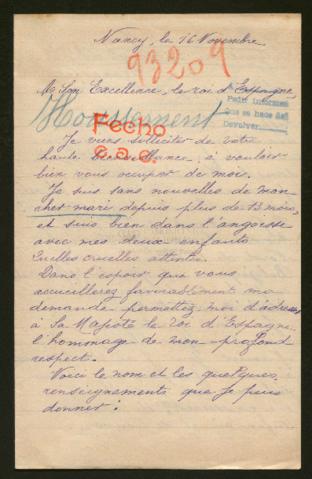 Nancy, le 16 Novembre
93209
A Son Excellence, le roi d'Espagne
Houssement
Fecho
c.a.c.
Pedir informes
que se hace del
Devolver
Je viens solliciter de votre
haute bienveillance, à vouloir
bien vous occuper de moi.
Je suis sans nouvelles de mon
cher mari depuis plus de 13 mois,
et suis bien dans l'angoisse
avec mes deux enfants
Quelles cruelles attente.
Dans l'espoir que vous
accueillerez favorablement ma
demande permettez moi d'adresser
à Sa Majesté le roi d'Espagne,
l'hommage de mon profond
respect.
Voici le nom et les quelques
renseignements que je puis
donner :